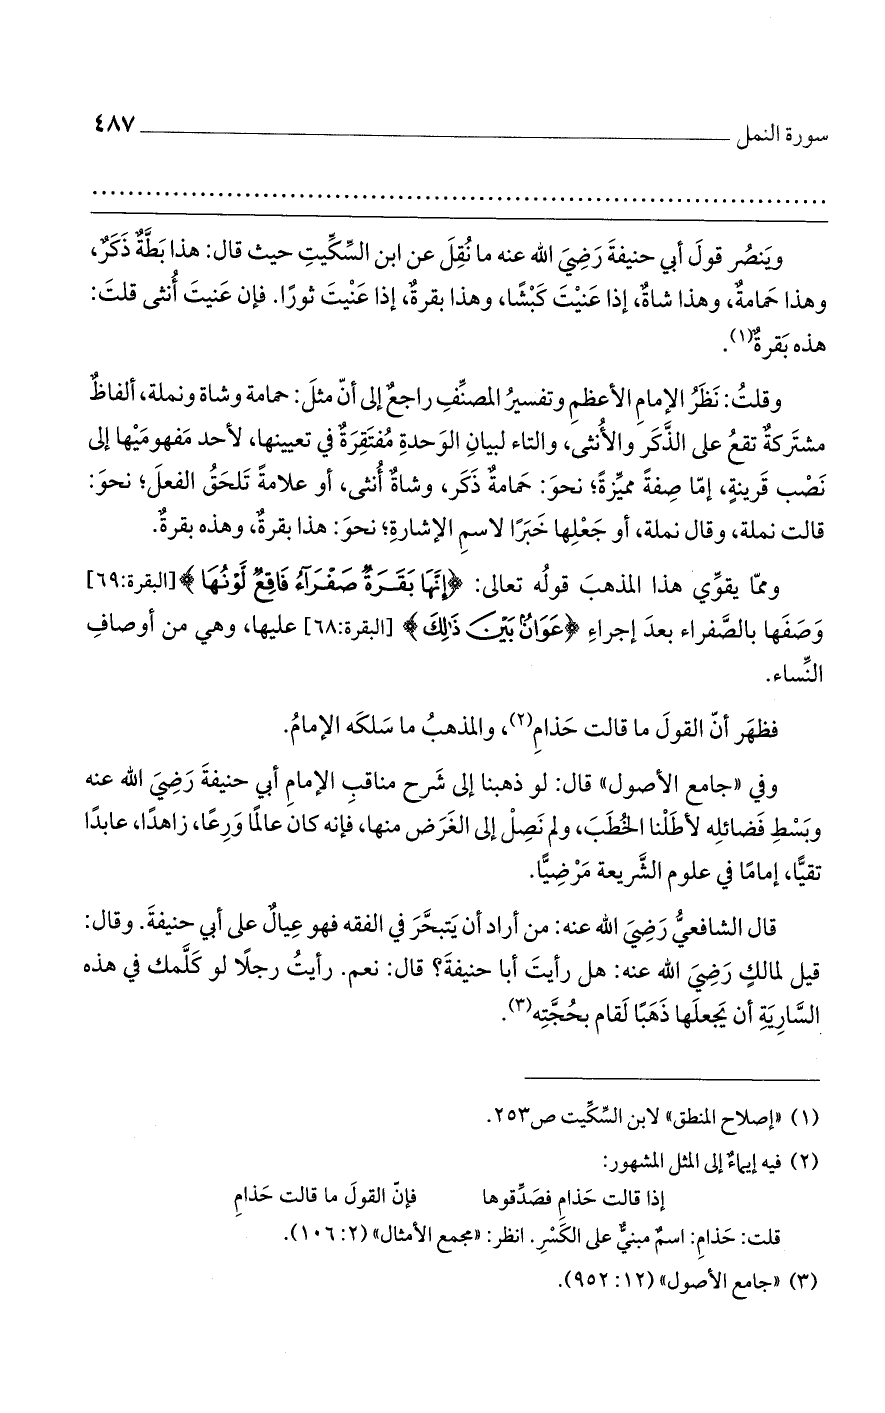 سورة النمل ٤٨٧
وَينصُر قولَ أبي حنيفةَ رَضِيَ الله عنه ما نُقِلَ عن ابن السِّكِّيتِ حيث قال: هذا بَطَّةٌ ذَكَرٌ،
وهذا حَمامةٌ، وهذا شاةٌ، إذا عَنَيْتَ كَبْشًا، وهذا بقرةٌ، إذا عَنْيتَ ثورًا. فإن عَنيتَ أُنثى قلتَ:
هذه بَقرةٌ(١).
وقلتُ: نَظَرُ الإمامِ الأعظمِ وتفسيرُ المصنِّفِ راجعٌ إلى أنّ مثلَ: حمامة وشاة ونملة، ألفاظٌ
مشتَركةٌ تقعُ على الذَّكَر والأُنثى، والتاء لبيانِ الوَحدةِ مُفتَقِرَةٌ في تعيينها، لأحد مَفهومَيْها إلى
نَصْب قَرينةٍ، إمّا صِفةً مميِّزةً؛ نحوَ: حَمامةٌ ذَكَر، وشاةٌ أُنثى، أو علامةً تَلحَقُ الفعلَ؛ نحوَ:
قالت نملة، وقال نملة، أو جَعْلِها خَبَرًا لاسمِ الإشارةِ؛ نحوَ: هذا بقرةٌ، وهذه بقرةٌ.
وممّا يقوِّي هذا المذهبَ قولُه تعالى: ﴿إِنَّهَا بَقَرَةٌ صَفْرَآءُ فَاقِعٌ لَّوْنُهَا﴾ [البقرة:٦٩]
وَصَفَها بالصَّفراء بعدَ إجراءِ ﴿عَوَانٌ بَيْنَ ذَٰلِكَ﴾ [البقرة:٦٨] عليها، وهي من أوصافِ
النِّساء.
فظهَر أنّ القولَ ما قالت حَذامِ(٢)، والمذهبُ ما سَلكَه الإمامُ.
وفي «جامع الأصول» قال: لو ذهبنا إلى شَرح مناقبِ الإمامِ أبي حنيفةَ رَضِيَ الله عنه
وبَسْطِ فَضائلِه لأطَلْنا الخُطَبَ، ولم نَصِلْ إلى الغَرَض منها، فإنه كان عالمًا وَرِعًا، زاهدًا، عابدًا
تقيًّا، إمامًا في علوم الشَّريعة مَرْضِيًّا.
قال الشافعيُّ رَضِيَ الله عنه: من أراد أن يَتبحَّرَ في الفقه فهو عِيالٌ على أبي حنيفةَ. وقال:
قيل لمالكٍ رَضِيَ الله عنه: هل رأيتَ أبا حنيفةَ؟ قال: نعم. رأيتُ رجلًا لو كَلَّمك في هذه
السَّارِيَةِ أن يَجعلَها ذَهَبًا لَقام بحُجَّتِه(٣).
(١) «إصلاح المنطق» لابن السِّكِّيت ص٢٥٣.
(٢) فيه إيماءٌ إلى المثل المشهور:
إذا قالت حَذامِ فصَدِّقوها فإنّ القولَ ما قالت حَذامِ
قلت: حَذامِ: اسمٌ مبنيٌّ على الكَسْرِ. انظر: «مجمع الأمثال» (٢: ١٠٦).
(٣) «جامع الأصول» (١٢: ٩٥٢).